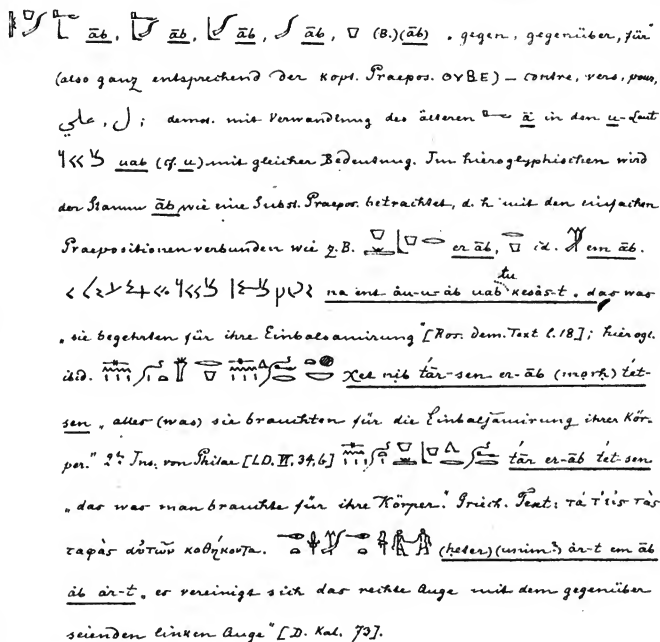 āb, āb, āb, āb, (B.)(āb) „gegen, gegenüber, für"
(also ganz entsprechend der kopt. Praepos. ΟΥΒΕ) – contre, vers, pour,
ل, علي; demot. mit Verwandlung des älteren ā in den u-Laut
uab (cf. u) mit gleicher Bedeutung. Im hieroglyphischen wird
der Stamm āb wie eine Subst. Praepos. betrachtet, d. h. mit den einfachen
Praepositionen verbunden wie z. B. er āb, id. em āb.
na ent āu-u-āb uab tu kesās-t. „das was
„sie begehrten für ihre Einbalsamirung" [Ros. dem. Text l. 18]; hierogl.
ibid. χet nib tār-sen er-āb (morh) tet-
sen „alles (was) sie brauchten für die Einbalsamirung ihrer Kör-
per." 2te Ins. von Philae [LD. VI, 34, 6] tār er-āb tet-sen
„das was man brauchte für ihre Körper." Griech. Text: τά τ'εἰς τὰς
ταφὰς αὐτῶν καθήκοντα. (heter) (unim?) àr-t em āb
āb àr-t. „es vereinigt sich das rechte Auge mit dem gegenüber
seienden linken Auge" [D. Kal. 73].